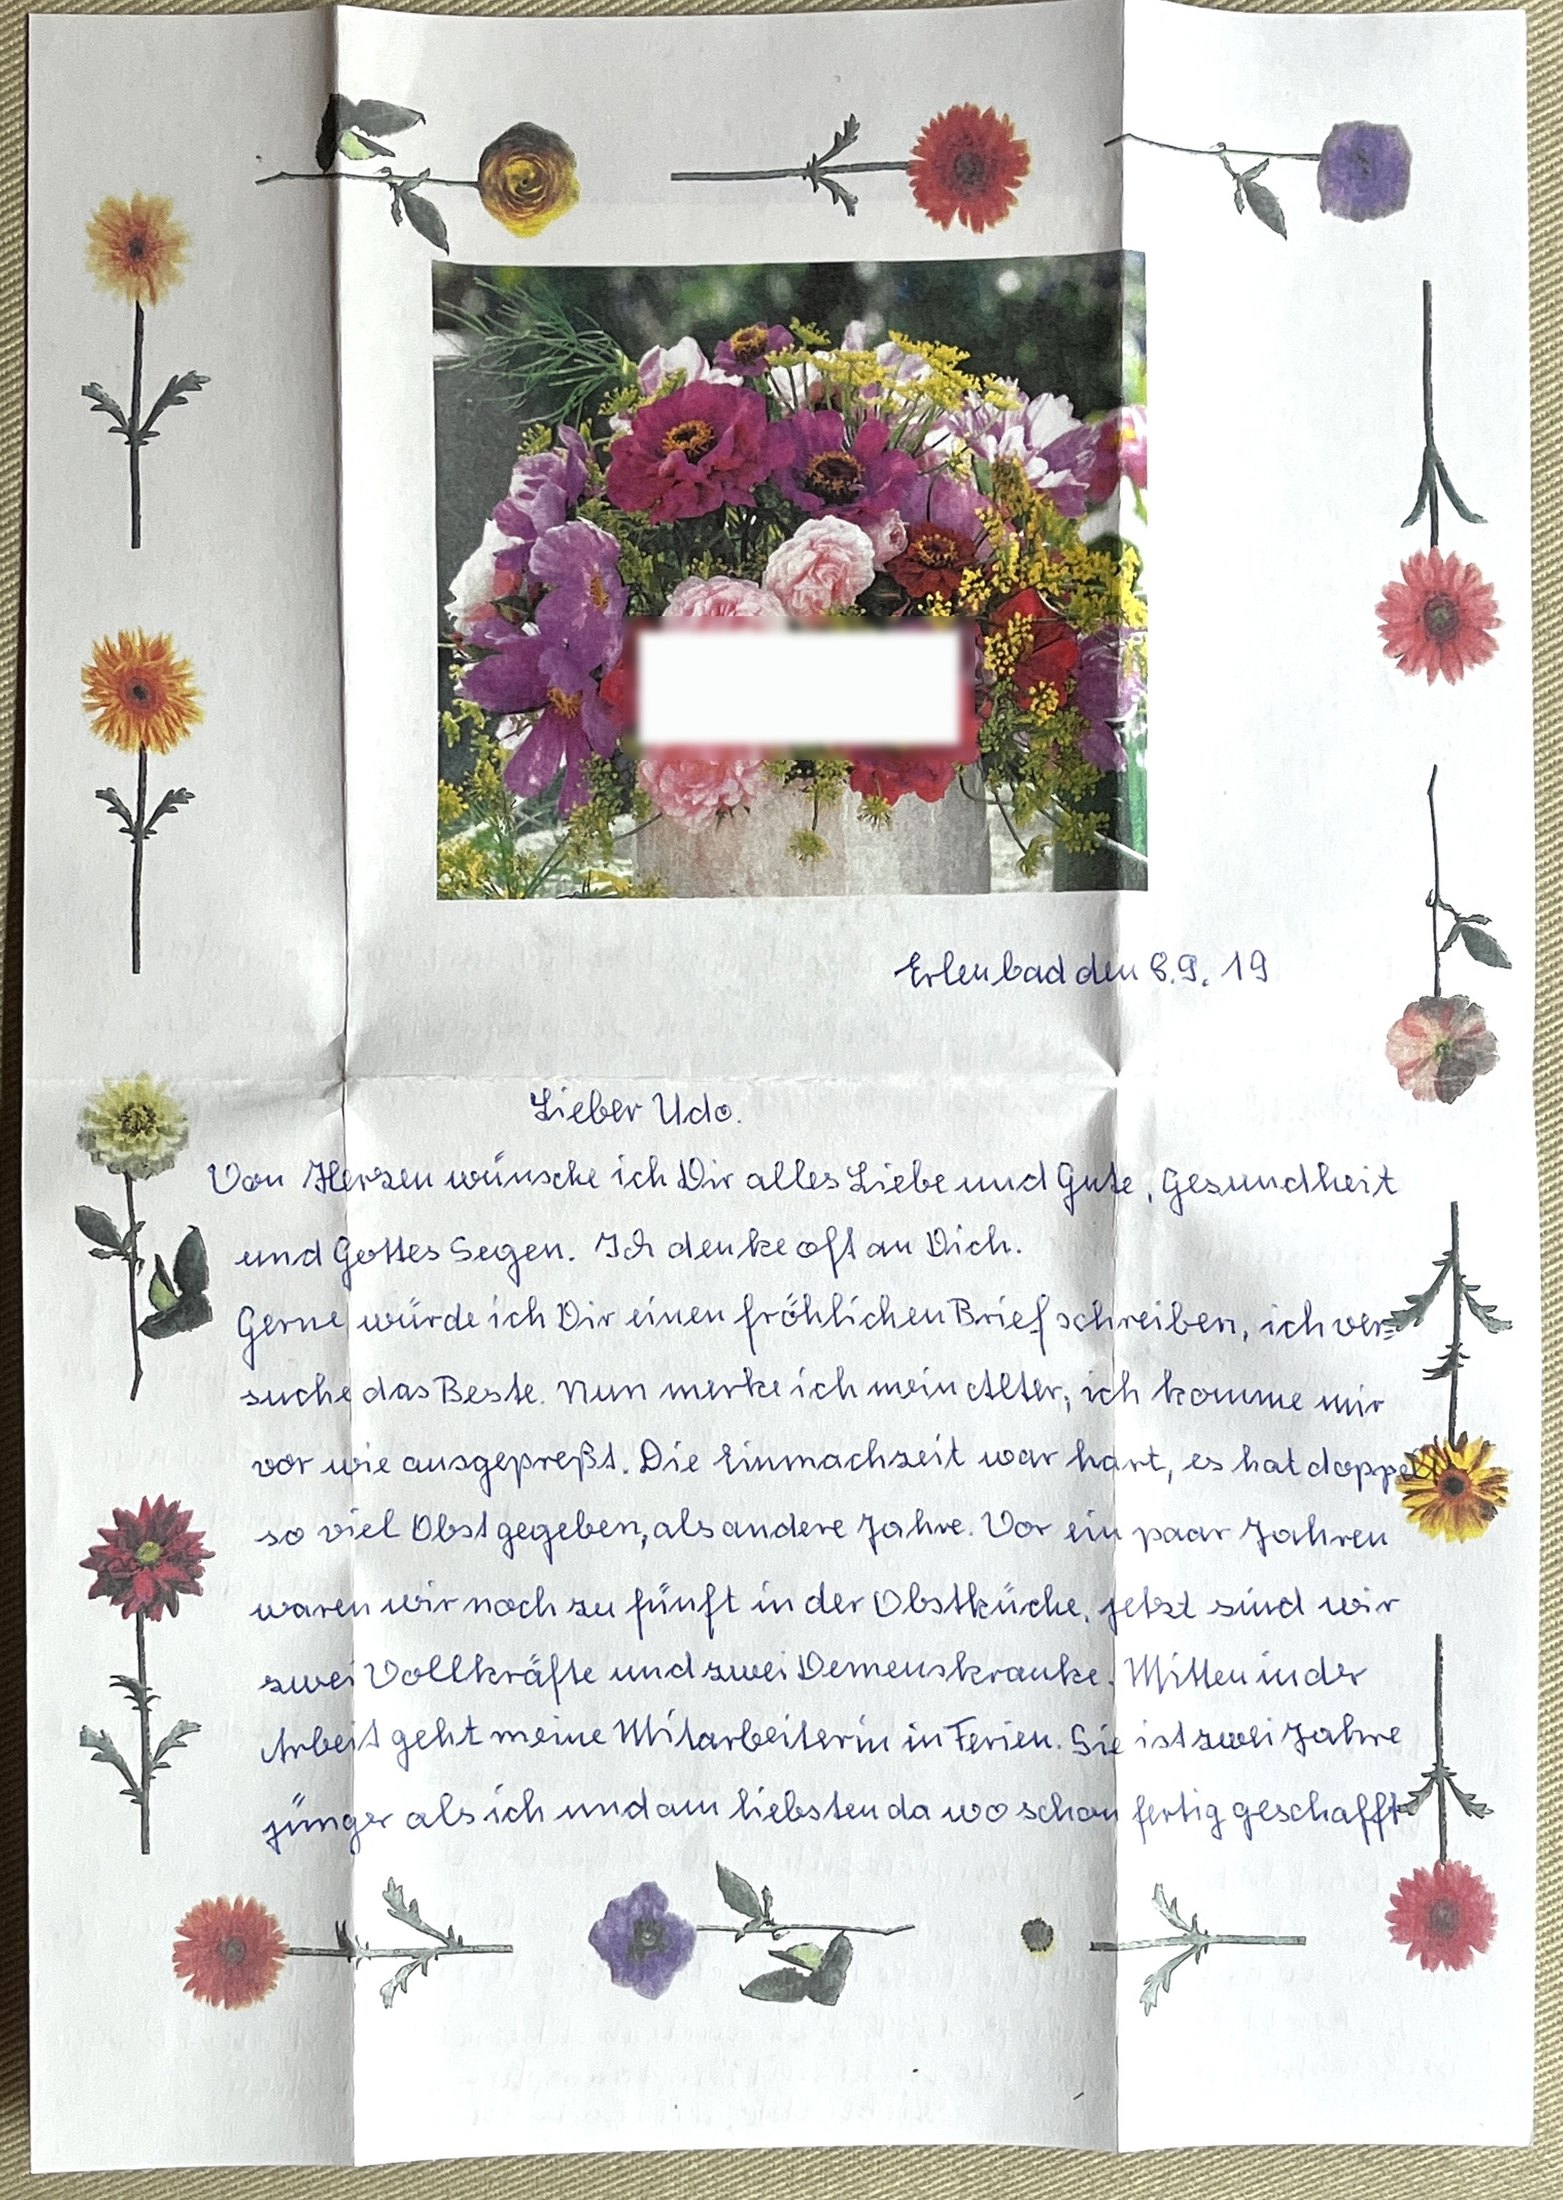 Erlenbad den 8.9.19
Lieber Udo.
Von Herzen wünsche ich Dir alles Liebe und Gute, Gesundheit
und Gottes Segen. Ich denke oft an Dich.
Gerne würde ich Dir einen fröhlichen Brief schreiben, ich ver=
suche das Beste. Nun merke ich mein Alter, ich komme mir
vor wie ausgepreßt. Die Einmachzeit war hart, es hat doppelt
so viel Obst gegeben, als andere Jahre. Vor ein paar Jahren
waren wir noch zu fünft in der Obstküche, jetzt sind wir
zwei Vollkräfte und zwei Demenskranke. Mitten in der
Arbeit geht meine Mitarbeiterin in Ferien. Sie ist zwei Jahre
jünger als ich und am liebsten da wo schon fertig geschafft